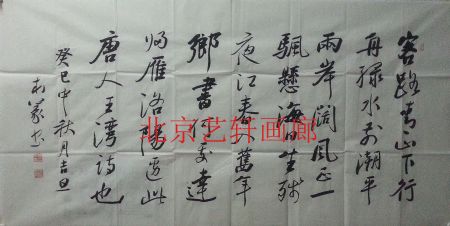 客路青山下行
舟緑水前潮平
兩岸闊風正一
颿懸海日生残
夜江春入舊年
鄉書何處達
歸雁洛陽邊此
唐人王灣詩也
癸巳中秋月吉旦
书
北京艺轩画廊